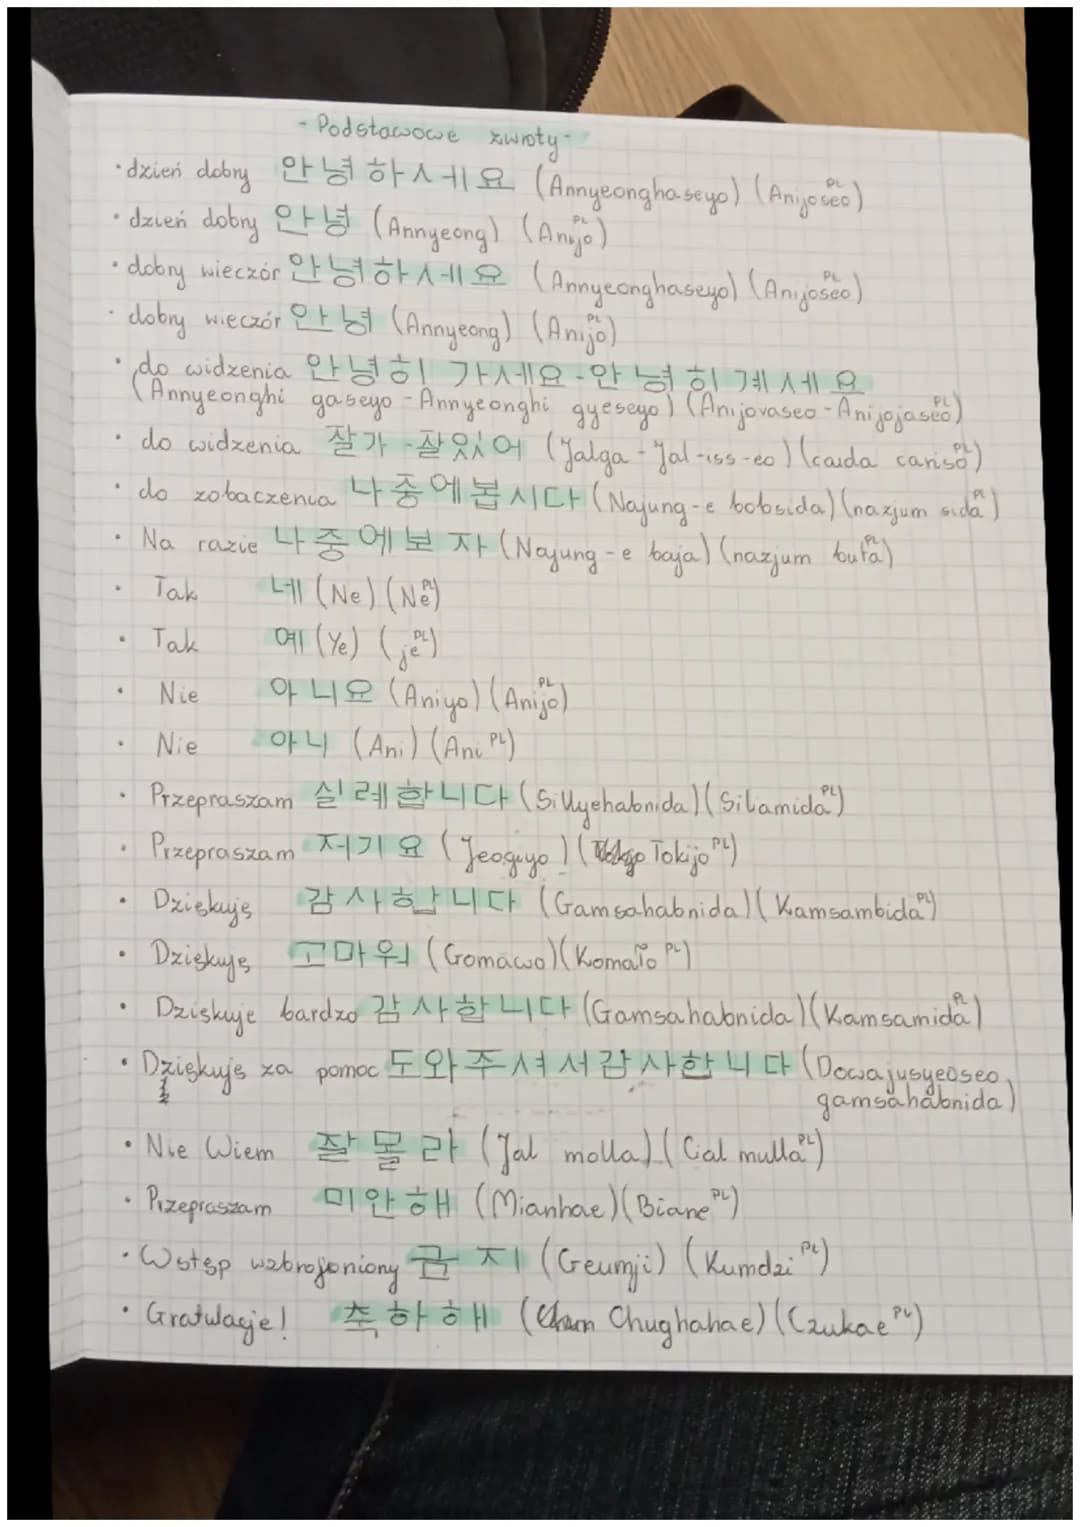 - Podstawowe zwroty -
• dzień dobry 안녕하세요 (Annyeonghaseyo) (Anijoseo PL)
• dzień dobry 안녕 (Annyeong) (Anijo PL)
• dobry wieczór 안녕하세요 (Annyeonghaseyo) (Anijoseo PL)
• dobry wieczór 안녕 (Annyeong) (Anijo PL)
• do widzenia 안녕히 가세요 - 안녕히 계세요
(Annyeonghi gaseyo - Annyeonghi gyeseyo) (Anijovaseo - Anijojaseo PL)
• do widzenia 잘가 - 잘있어 (Jalga - Jal-iss-eo) (cauda cariso PL)
• do zobaczenia 나중에봅시다 (Najung-e bobsida) (nazjum sida PL)
• Na razie 나중에보자 (Najung-e baja) (nazjum buta PL)
• Tak 네 (Ne) (Ne PL)
• Tak 예 (Ye) (je PL)
• Nie 아니요 (Aniyo) (Anijo PL)
• Nie 아니 (Ani) (Ani PL)
• Przepraszam 실례합니다 (Sillyehabnida) (Silamida PL)
• Przepraszam 저기요 (Jeogiyo) (Tokijo PL)
• Dziękuję 감사합니다 (Gamsahabnida) (Kamsambida PL)
• Dziękuję 고마워 (Gomawo) (Komało PL)
• Dziękuje bardzo 감사합니다 (Gamsahabnida) (Kamsamida PL)
• Dziękuję za pomoc 도와주셔서감사합니다 (Dowajusyeoseo
gamsahabnida)
• Nie Wiem 잘 몰라 (Jal molla) (Cial mulla PL)
• Przepraszam 미안해 (Mianhae) (Biane PL)
• Wstęp wzbrojoniony 금지 (Geumji) (Kumdzi PL)
• Gratulacje! 축하해 (Chughahae) (Czukae PL)